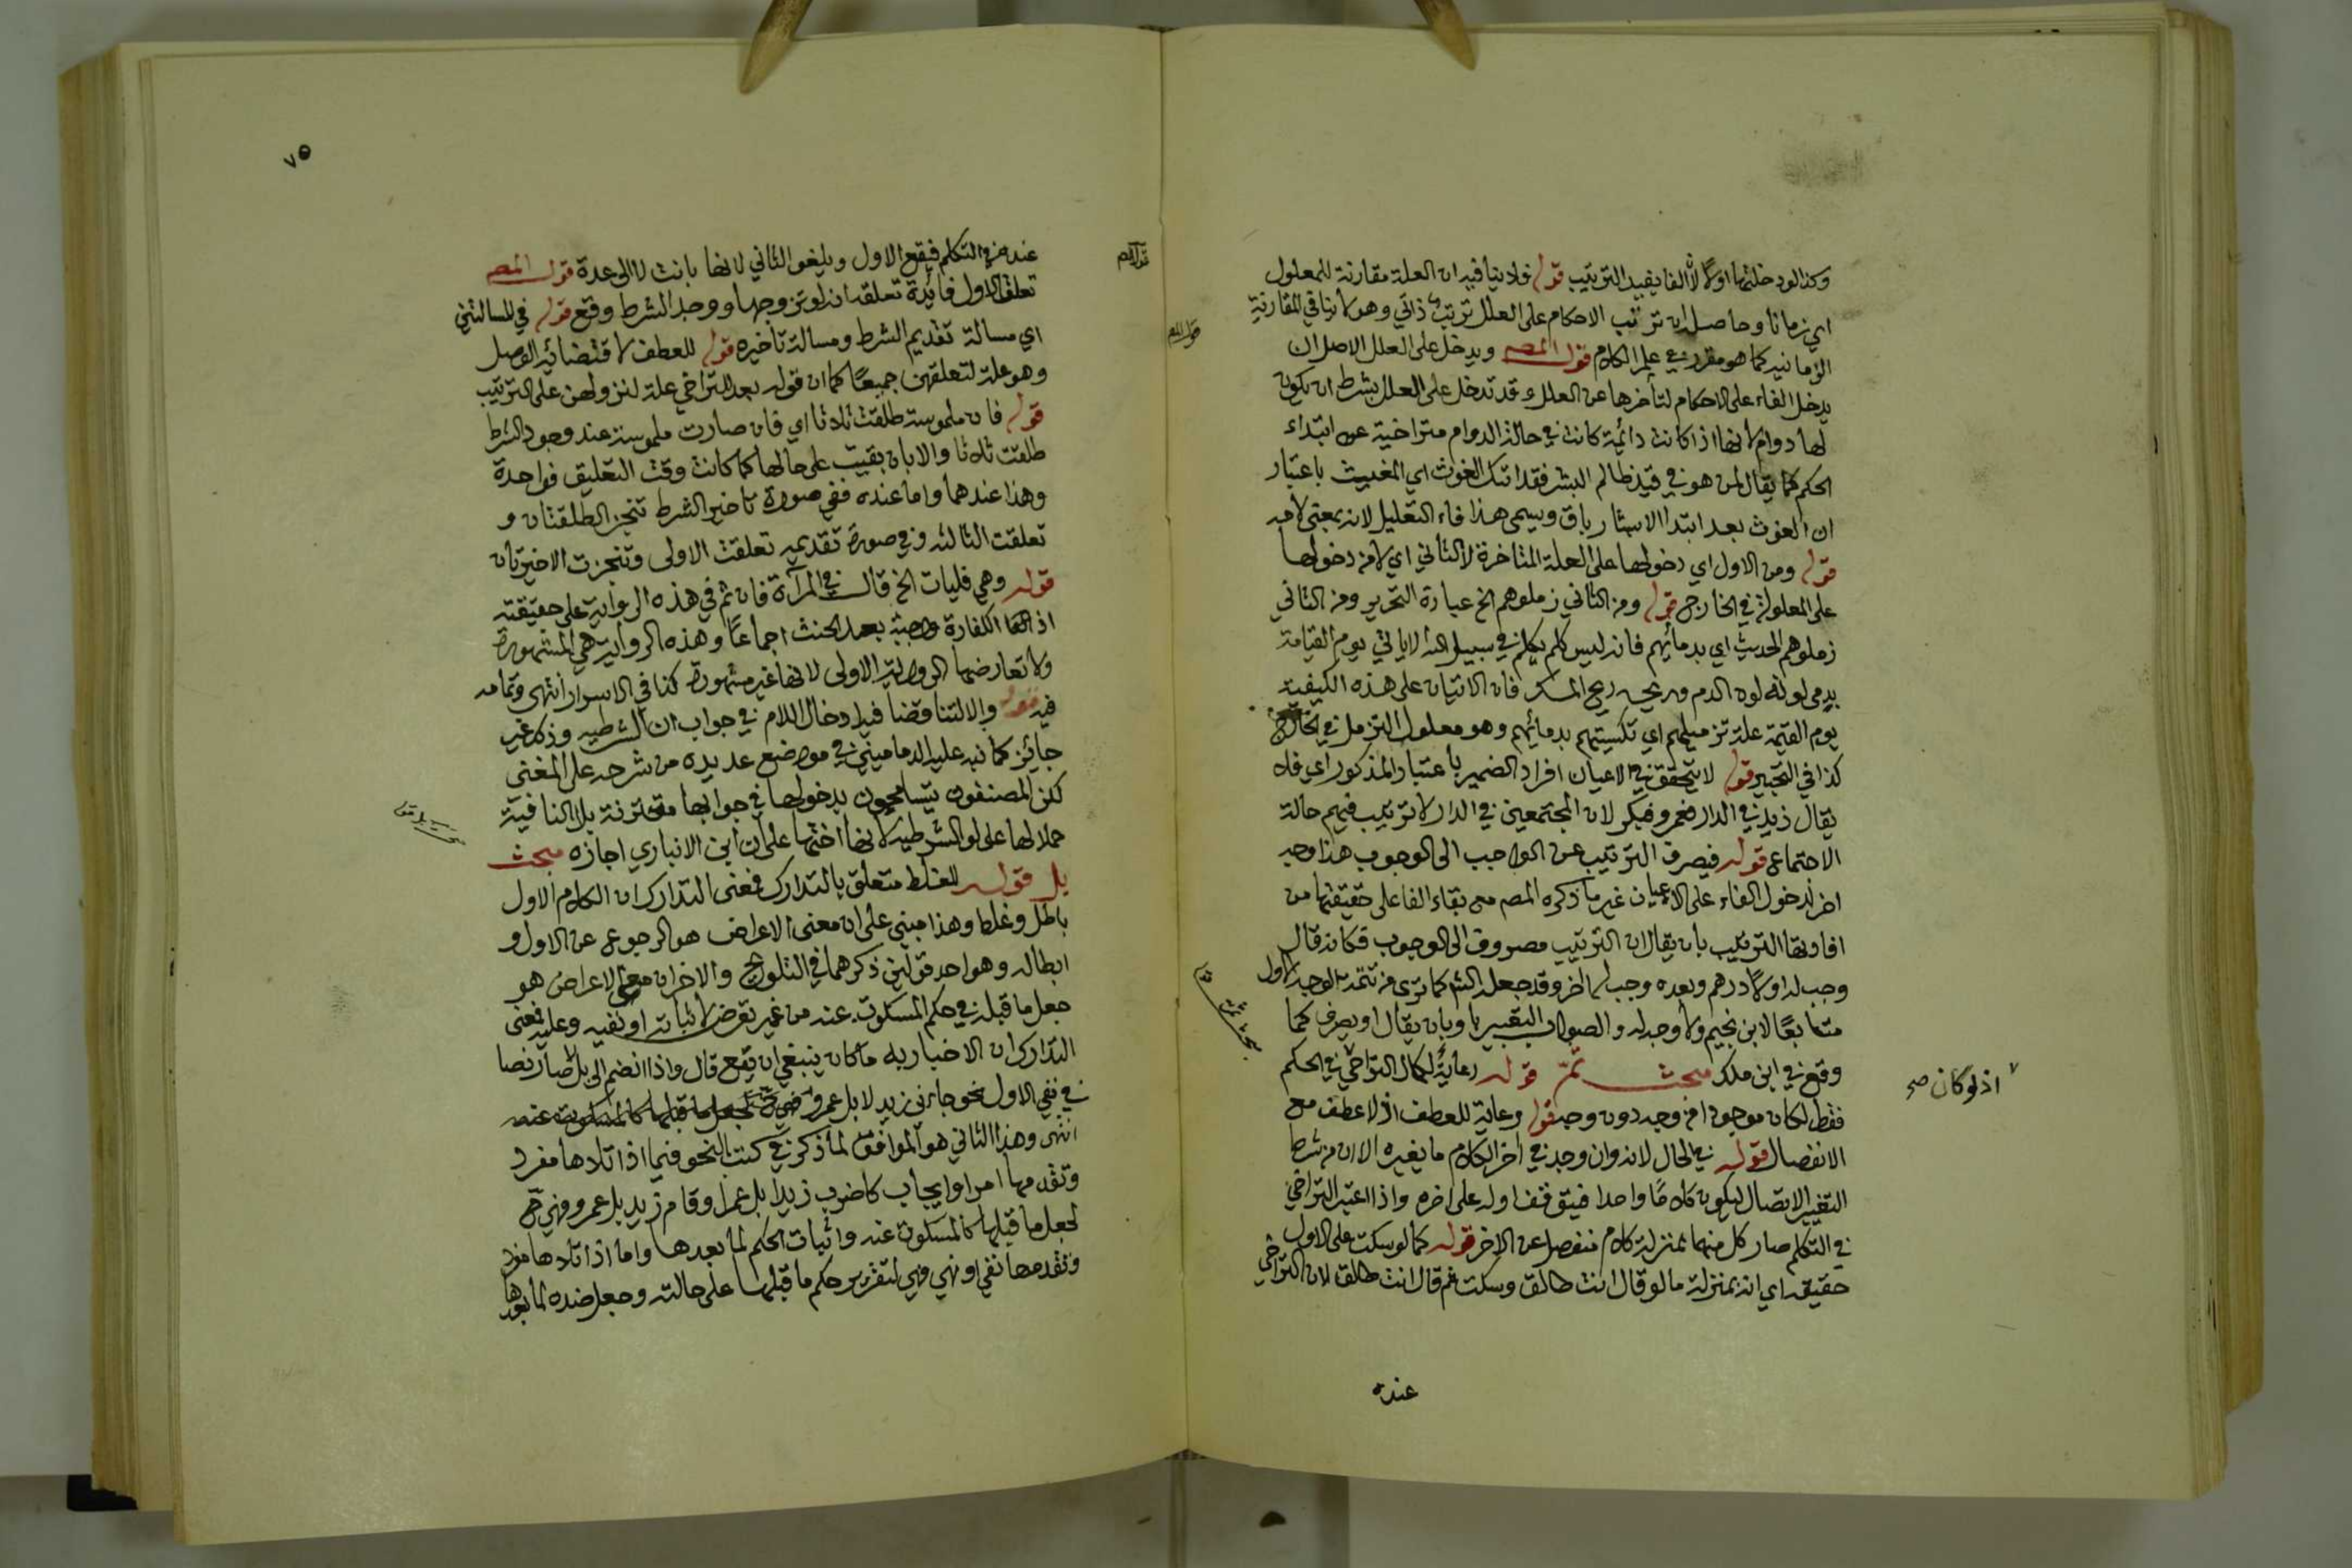 وكذا لو دخلتها اولا لأن الفا يفيد الترتيب قوله فلا ينافيه ان العلة مقارنة للمعلول
اي زمانا وحاصله ان ترتب الاحكام على العلل ترتب ذاتي وهو لا ينافي المقارنة
الزمانية كما هو مقرر في علم الكلام قول المصه ويدخل على العلل الاصل ان
يدخل الفاء على الاحكام لتأخرها عن العلل وقد تدخل على العلل بشرط ان يكون
لها دوام لانها اذا كانت دائمة كانت في حالة الدوام متراخية عن ابتداء
الحكم كما يقال لمن هو في قيد ظالم ابشر فقد اتاك الغوث اي المغيث باعتبار
ان الغوث بعد ابتدا الابشار باق ويسمى هذا فاء التعليل لانه بمعنى لامه
قوله ومن الاول اي دخولها على العلة المتاخرة لا الثاني اي لا من دخولها
على المعلولة في الخارج قوله ومن الثاني زملوهم الخ عبارة التحرير ومن الثاني
زملوهم الحديث اي بدمائهم فانه ليس كلم يكلم في سبيل الله الا ياتي يوم القيامة
يدمى لونه لون الدم وريحه ريح المسك فان الاتيان على هذه الكيفية
يوم القيمة علة تزميلهم اي تكسيتهم بدمائهم وهو معلول التزمل في الخارج
كذا في التحبير قوله لا يتحقق في الاعيان افراد الضمير باعتبار المذكور اي فلا
يقال زيد في الدار فعمرو فبكر لان المجتمعين في الدار لا ترتيب فيهم حالة
الاجتماع قوله فيصرف الترتيب عن الواجب الى الوجوب هذا وجه
اخر لدخول الفاء على الاعيان غير ما ذكره المص مع بقاء الفا على حقيقتها من
افادتها الترتيب بان يقال ان الترتيب مصروف الى الوجوب فكانه قال
وجب له اولا درهم وبعده وجب له اخر وقد جعله الش كما ترى من تتمة الوجه الاول
متابعا لابن نجيم ولا وجه له والصواب التعبير باو بان يقال او يصرف كما
وقع في ابن ملك مبحث ثم قوله رعاية لكمال التراخي في الحكم
اذ لو كان صح
فقط لكان موجودا من وجه دون وجه قوله رعاية للعطف اذ لا عطف مع
الانفصال قوله في الحال لانه وان وجد في اخر الكلام ما يغيره الا ان من شرط
التغيير الاتصال ليكون كلاما واحدا فيتوقف اوله على اخره واذا اعتبر التراخي
في التكلم صار كل منهما بمنزلة كلام منفصل عن الاخر قوله كما لو سكت على الاول
حقيقة اي انه بمنزلة ما لو قال انت طالق وسكت ثم قال انت طالق لان التراخي
عنده
٧٥
عنده في التكلم فيقع الاول ويلغو الثاني لانها بانت لا الى عدة قول المصه
تعلق الاول فائدة تعلقه انه لو تزوجها ووجد الشرط وقع قوله في المسالتين
اي مسالة تقديم الشرط ومسالة تاخيره قوله للعطف لاقتضائه الوصل
وهو علة لتعلقهن جميعا كما ان قوله بعد للتراخي علة لنزولهن على الترتيب
قوله فان ملموسة طلقت ثلاثا اي فان صارت ملموسة عند وجود الشرط
طلقت ثلاثا والا بان بقيت على حالها كما كانت وقت التعليق فواحدة
وهذا عندهما واما عنده ففي صورة تاخير الشرط تنجز الطلقتان و
تعلقت الثالثه وفي صورة تقديمه تعلقت الاولى وتنجزت الاخيرتان
قوله وهي فليات الخ قال في المرآة فان ثم في هذه الرواية على حقيقته
اذ الكفارة واجبة بعد الحنث اجماعا وهذه الرواية هي المشهورة
ولا تعارضها الرواية الاولى لانها غير مشهورة كذا في الاسرار انتهى وتمامه
فيه قوله والا لتناقضا فيه ادخال اللام في جواب ان الشرطيه وذلك غير
جائز كما نبه عليه الدماميني في مواضع عديدة من شرحه على المغني
لكن المصنفون يتسامحون بدخولها في جوابها مقترنة بلا النافية
حملا لها على لو الشرطيه لانها اختها على ان ابن الانباري اجازه مبحث
بل قوله للغلط متعلق بالتدارك فمعنى التدارك ان الكلام الاول
باطل وغلط وهذا مبني على ان معنى الاعراض هو الرجوع عن الاول و
ابطاله وهو احد قولين ذكرهما في التلويح والاخر ان معنى الاعراض هو
جعل ما قبله في حكم المسكوت عنه من غير تعرض لاثباته او نفيه وعليه فمعنى
التدارك ان الاخبار به ما كان ينبغي ان يقع قال واذا انضم الى بل لا صار نصا
في نفي الاول نحو جاءني زيد لا بل عمرو
انتهى وهذا الثاني هو الموافق لما ذكر في كتب النحو فيما اذا تلاها مفرد
وتقدمها امر او ايجاب كاضرب زيدا بل عمرا وقام زيد بل عمرو فهي ح
تجعل ما قبلها كالمسكوت عنه واثبات الحكم لما بعدها واما اذا تلاها مفرد
وتقدمها نفي او نهي فهي لتقرير حكم ما قبلها على حالته وجعل ضده لما بعدها